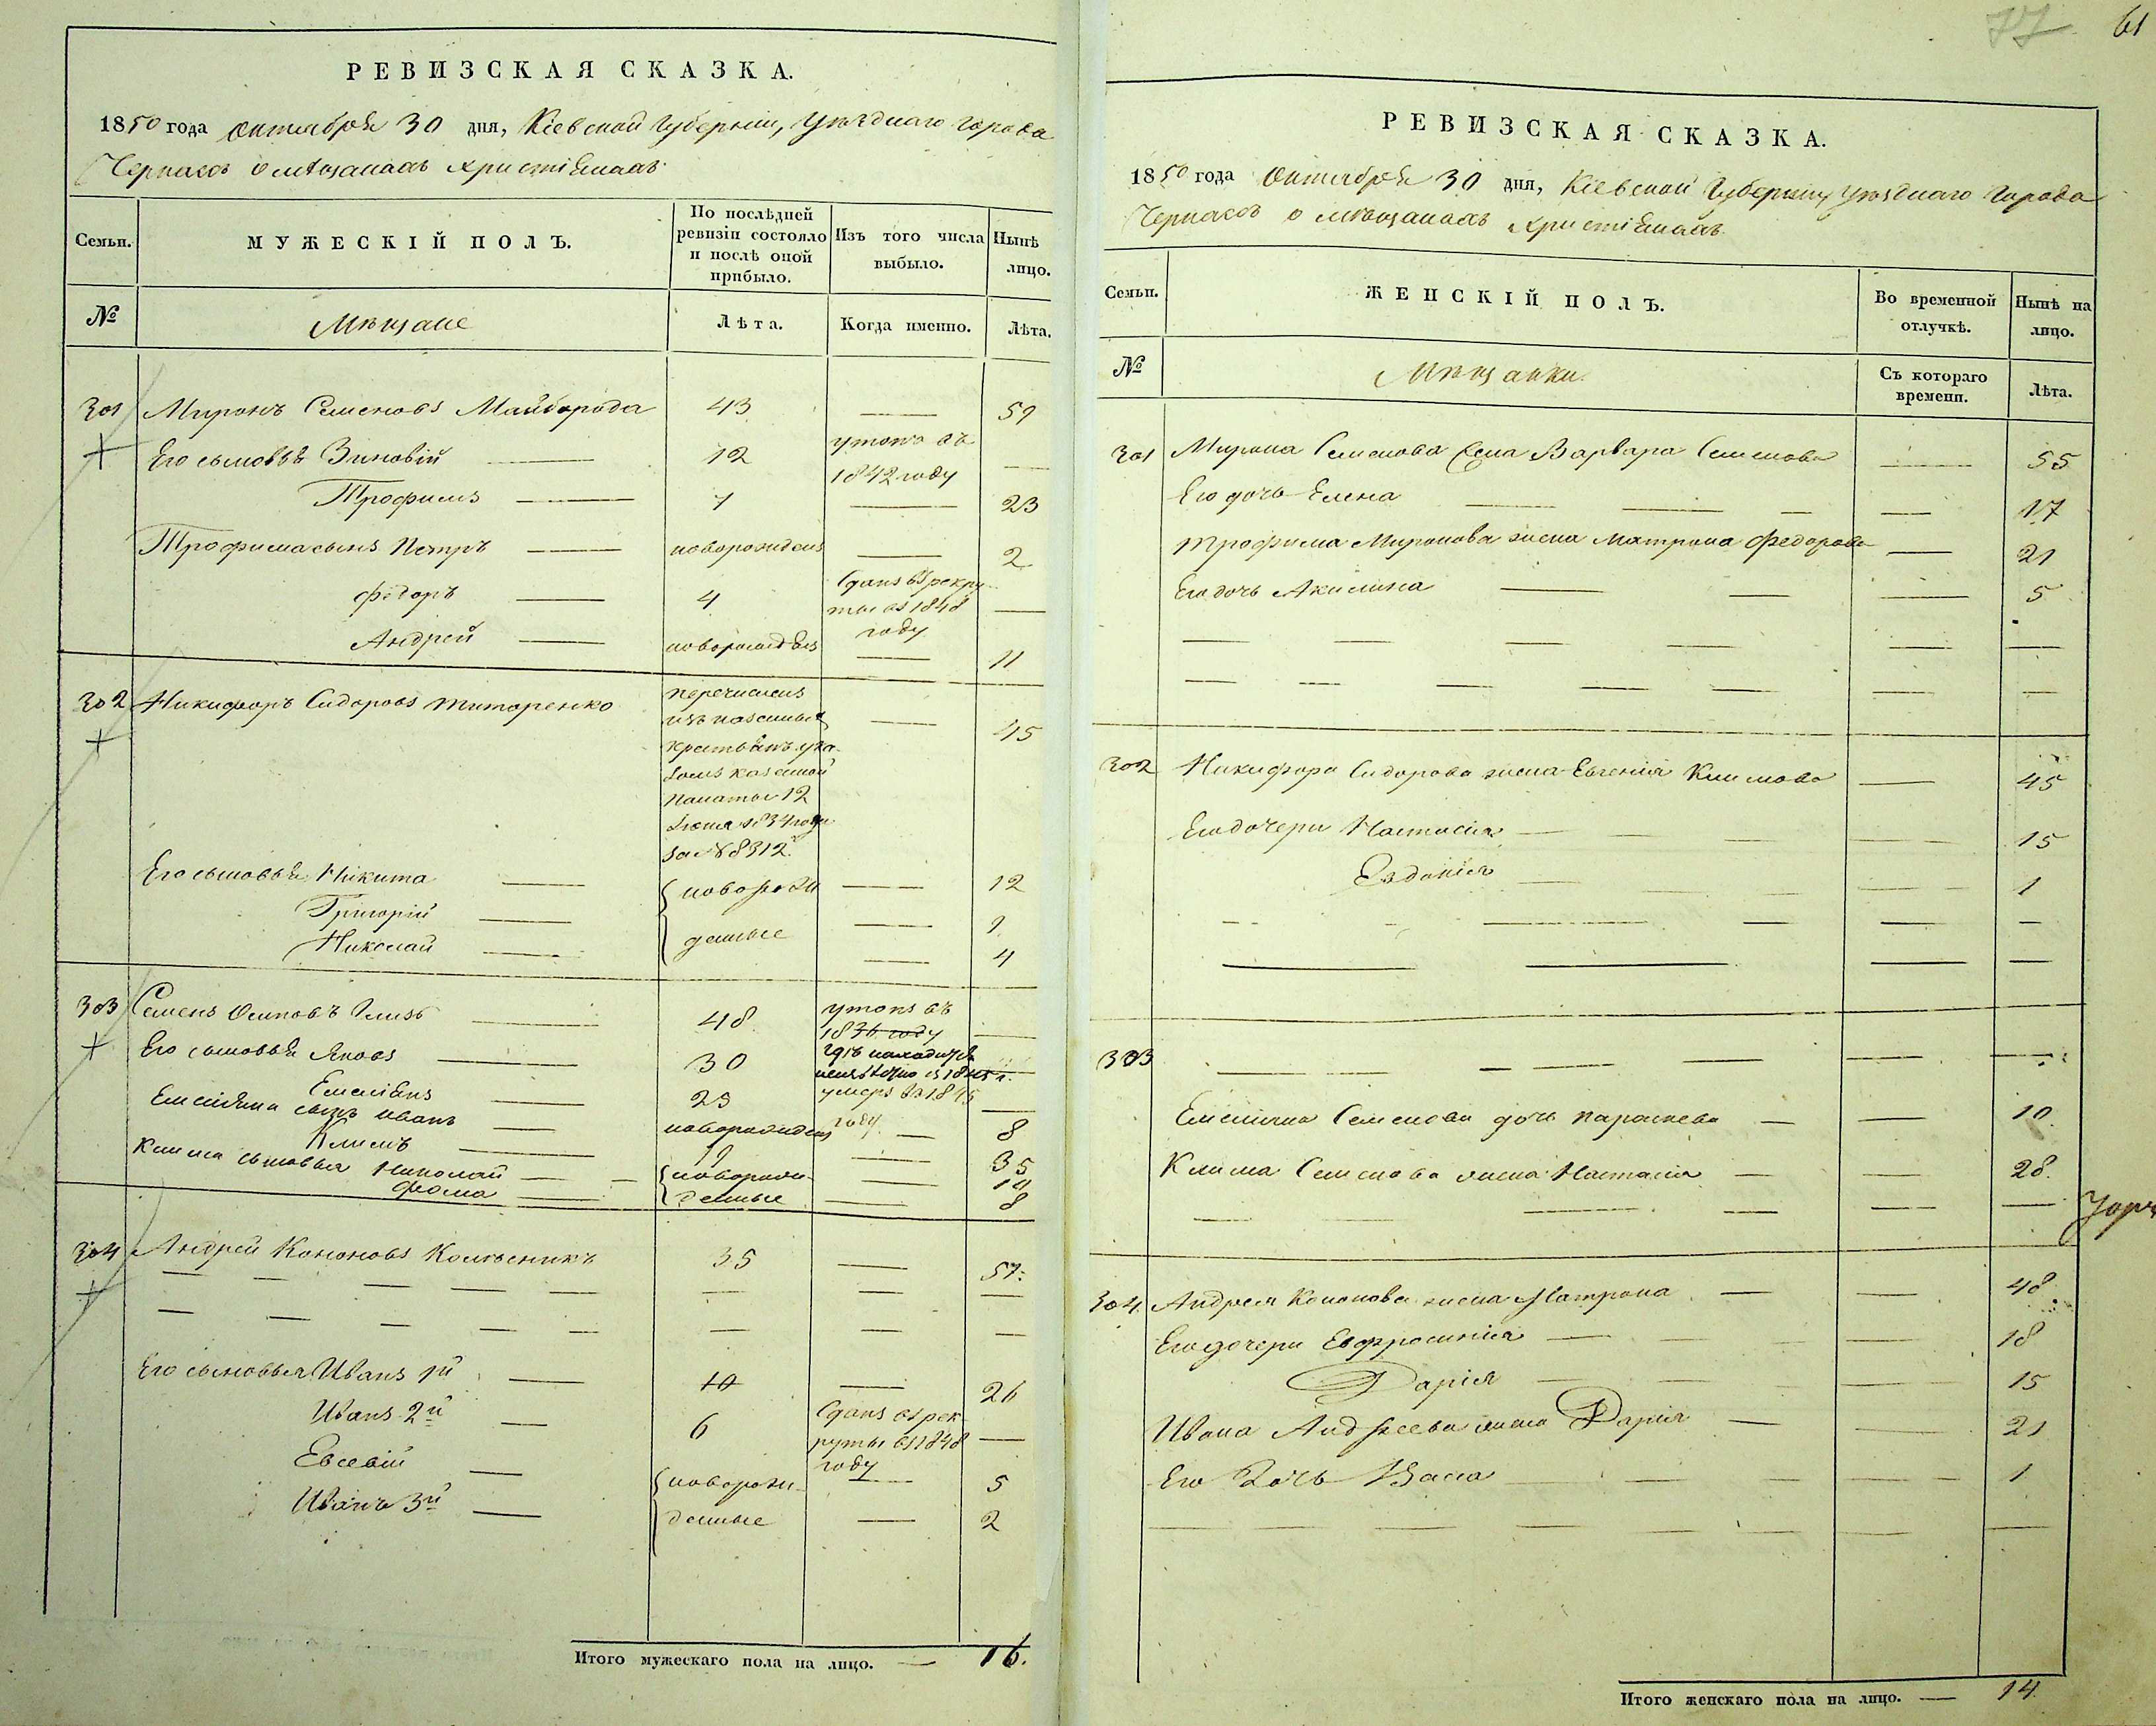 РЕВИЗСКАЯ СКАЗКА.
1850 года октября 30 дня, Кіевской Губерніи, Уѣзднаго города
Черкасъ о мѣщанахъ христіянахъ
Семьи.
МУЖЕСКІЙ ПОЛЪ.
По послѣдней ревизіи состояло и послѣ оной прибыло.
Изъ того числа выбыло.
Нынѣ лицо.
№
Мѣщане
Лѣта.
Когда именно.
Лѣта.
301 Миронъ Семеновъ Майборода 43 — 59
Его сыновья Зиновій — 12 утопъ въ 1842 году —
Трофимъ — 7 — 23
Трофима сынъ Петръ — новорожденъ — 2
Федоръ — 4 Сданъ въ рекруты въ 1848 году —
Андрей — новорожденъ — 11
302 Никифоръ Сидоровъ Титаренко
перечисленъ
изъ казенныхъ — 45
крестьянъ ука-
зомъ казенной
палаты 12
1834 года
за № 8312.
Его сыновья Никита — новорож- — 12
Григорій —
Николай — денные — 4
303 Семенъ Осиповъ — 48 утопъ въ 1836 году —
Его сыновья Яковъ — 30 гдѣ находится неизвѣстно съ 1845 г.
Емеліянъ — 25 умеръ въ 1845 году —
Емеліяна сынъ Иванъ — новорожденъ — 8
Климъ — 19 — 35
Клима сыновья Николай — новорож- — 14
Фома — денные — 8
304 Андрей Кононовъ Колѣсникъ 35 — 51.
Его сыновья Иванъ 1й — 10 — 26
Иванъ 2й — 6 Сданъ въ рекруты въ 1848 году —
Евсевій — новорож- — 5
Иванъ 3й — денные — 2
Итого мужескаго пола на лицо. — 16.
77 61
РЕВИЗСКАЯ СКАЗКА.
1850 года Октября 30 дня, Кіевской Губерніи Уѣзднаго Города
Черкасъ о мѣщанахъ христіянахъ.
Семьи.
ЖЕНСКІЙ ПОЛЪ.
Во временной отлучкѣ.
Нынѣ на лицо.
№
Мѣщанки.
Съ котораго времени.
Лѣта.
301 Мирона Семенова жена Варвара Семенова — 55
Его дочь Елена — 17
Трофима Миронова жена Матрона Федорова — 21
Его дочь Акилина — 5
302 Никифора Сидорова жена Евгенія Климова — 45
Его дочери Настасія — 15
Евдокія — 1
303
Емеліяна Семенова дочь Параскева — 10.
Клима Семенова жена Настасія — 28.
304. Андрея Кононова жена Матрона — 48
Его дочери Евфросинія — 18
Дарія — 15
Ивана Андреева жена Дарія — 21
Его дочь — 1
Итого женскаго пола на лицо. — 14.